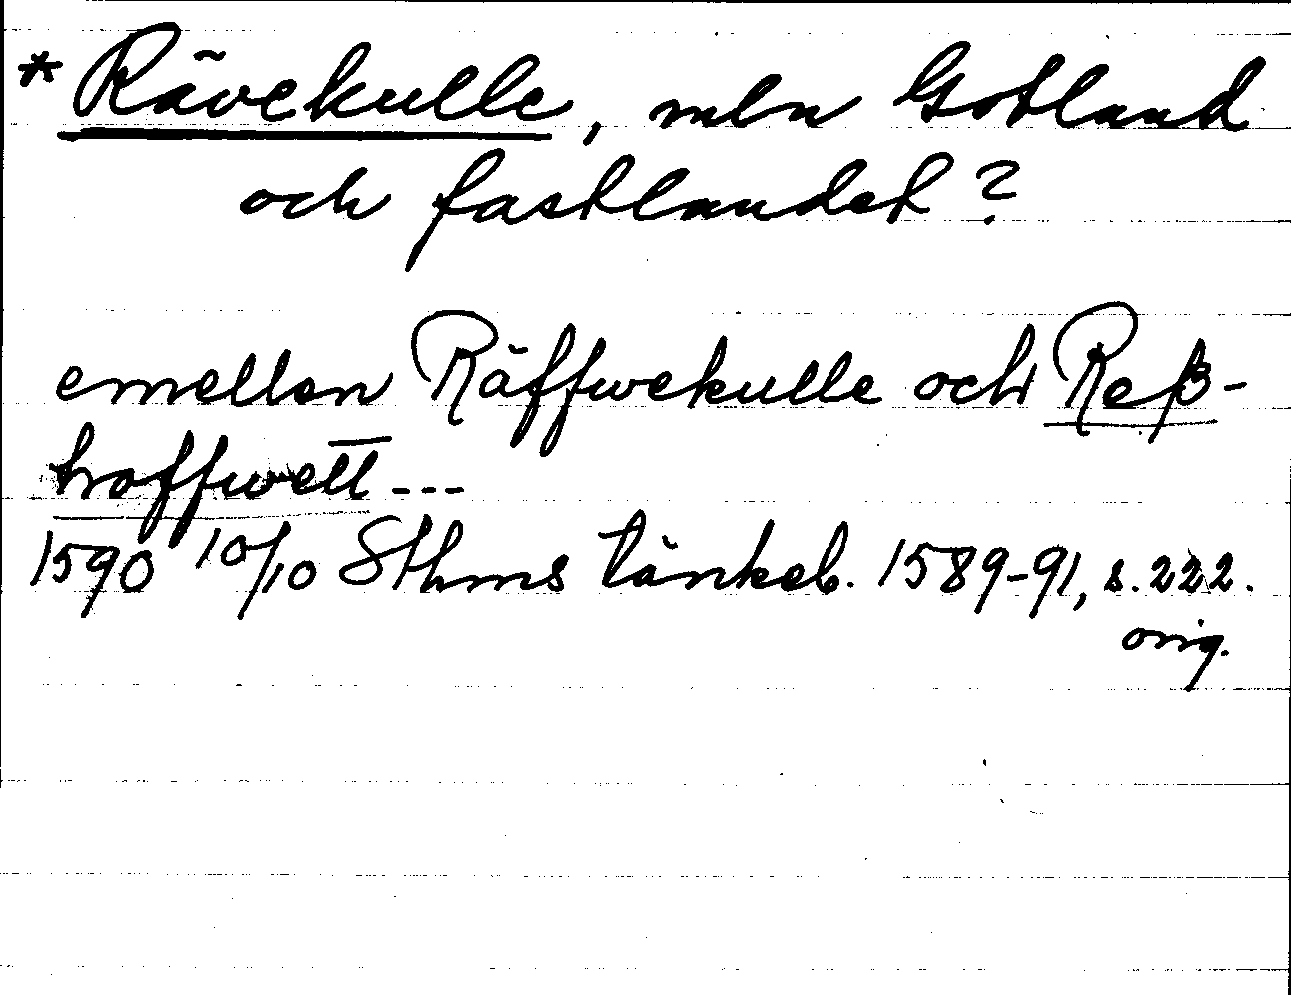 * Rävekulle, mln Gotland
och fastlandet?
emellan Räffwekulle och Reß-
hoffwett ---
1590 10/10 Sthms tänkeb. 1589-91, s. 222.
orig.